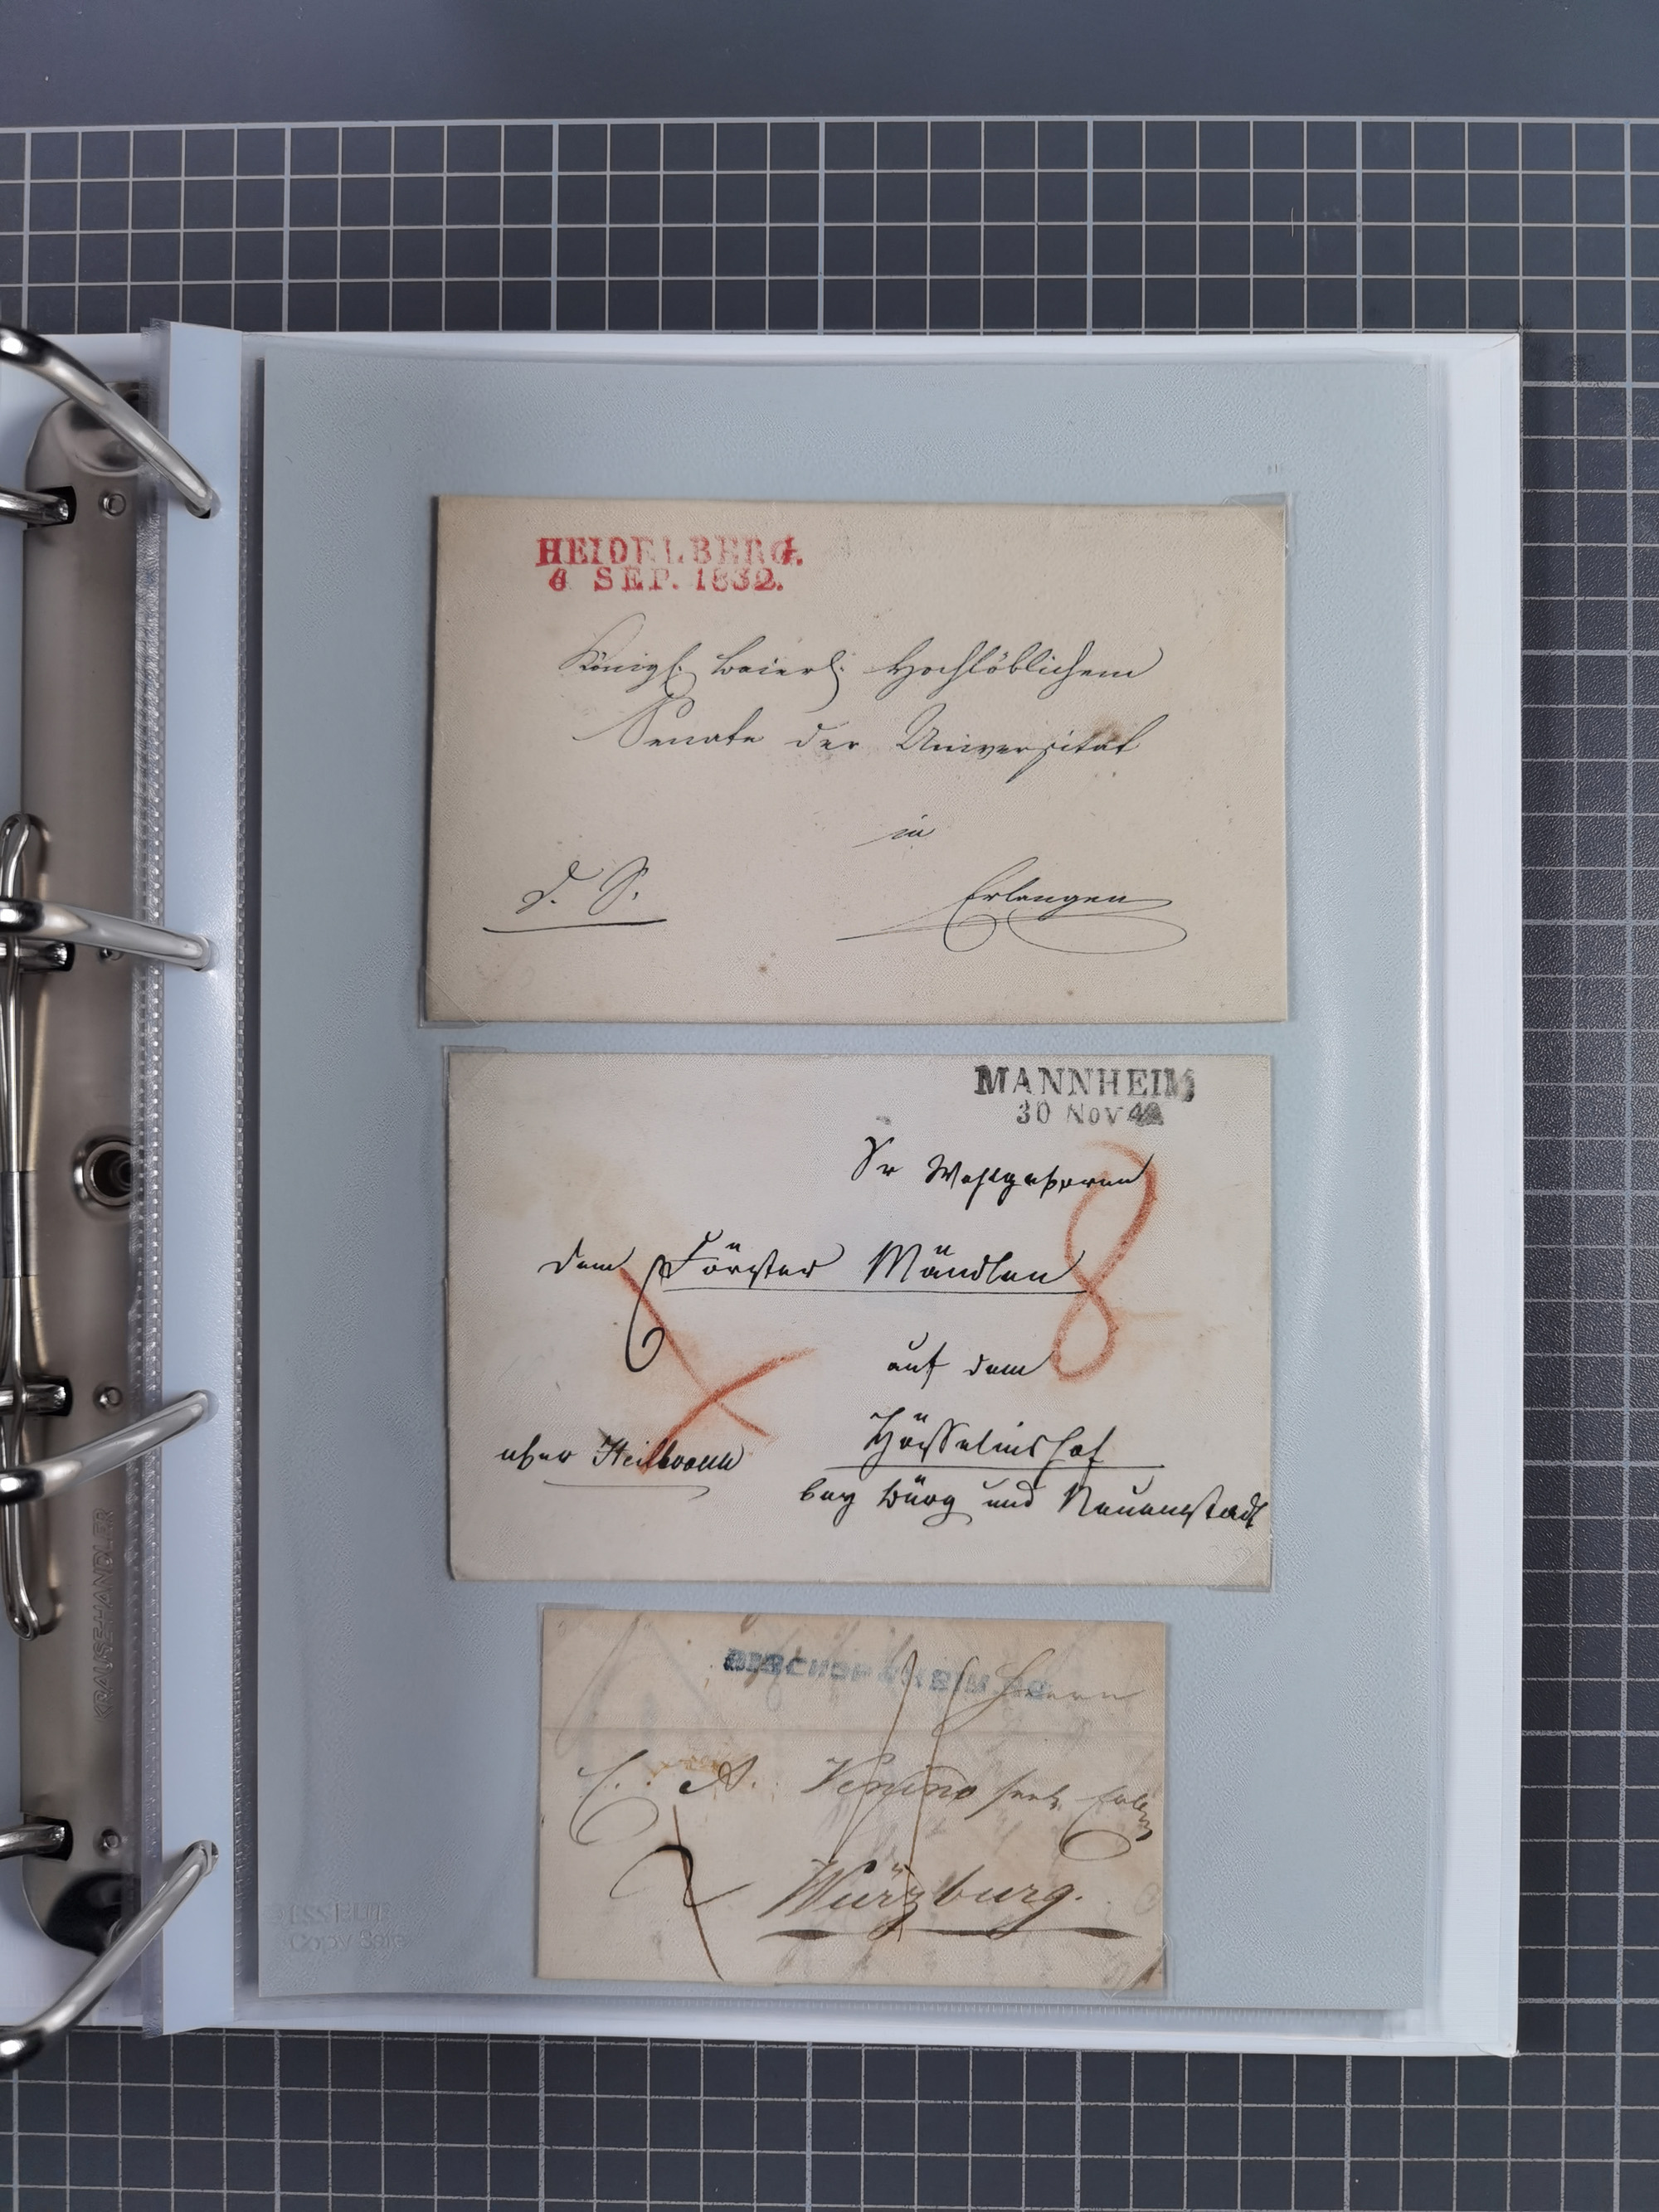 HEIDELBERG.
6 SEP. 1832.
Königl. baierl. Hochlöblichem
Senate der Universität
in
D. S.
Erlangen
MANNHEIM
30 NOV
Sr Wohlgeboren
dem Förster Mändlen
8
auf dem
über Heilbronn
Hösselinshof
bey Bürg und Neuenstadt
BISCHOFSHEIM
Herrn
C. A. Venino
Würzburg.
KRAUSEHANDLER
Copy Safe